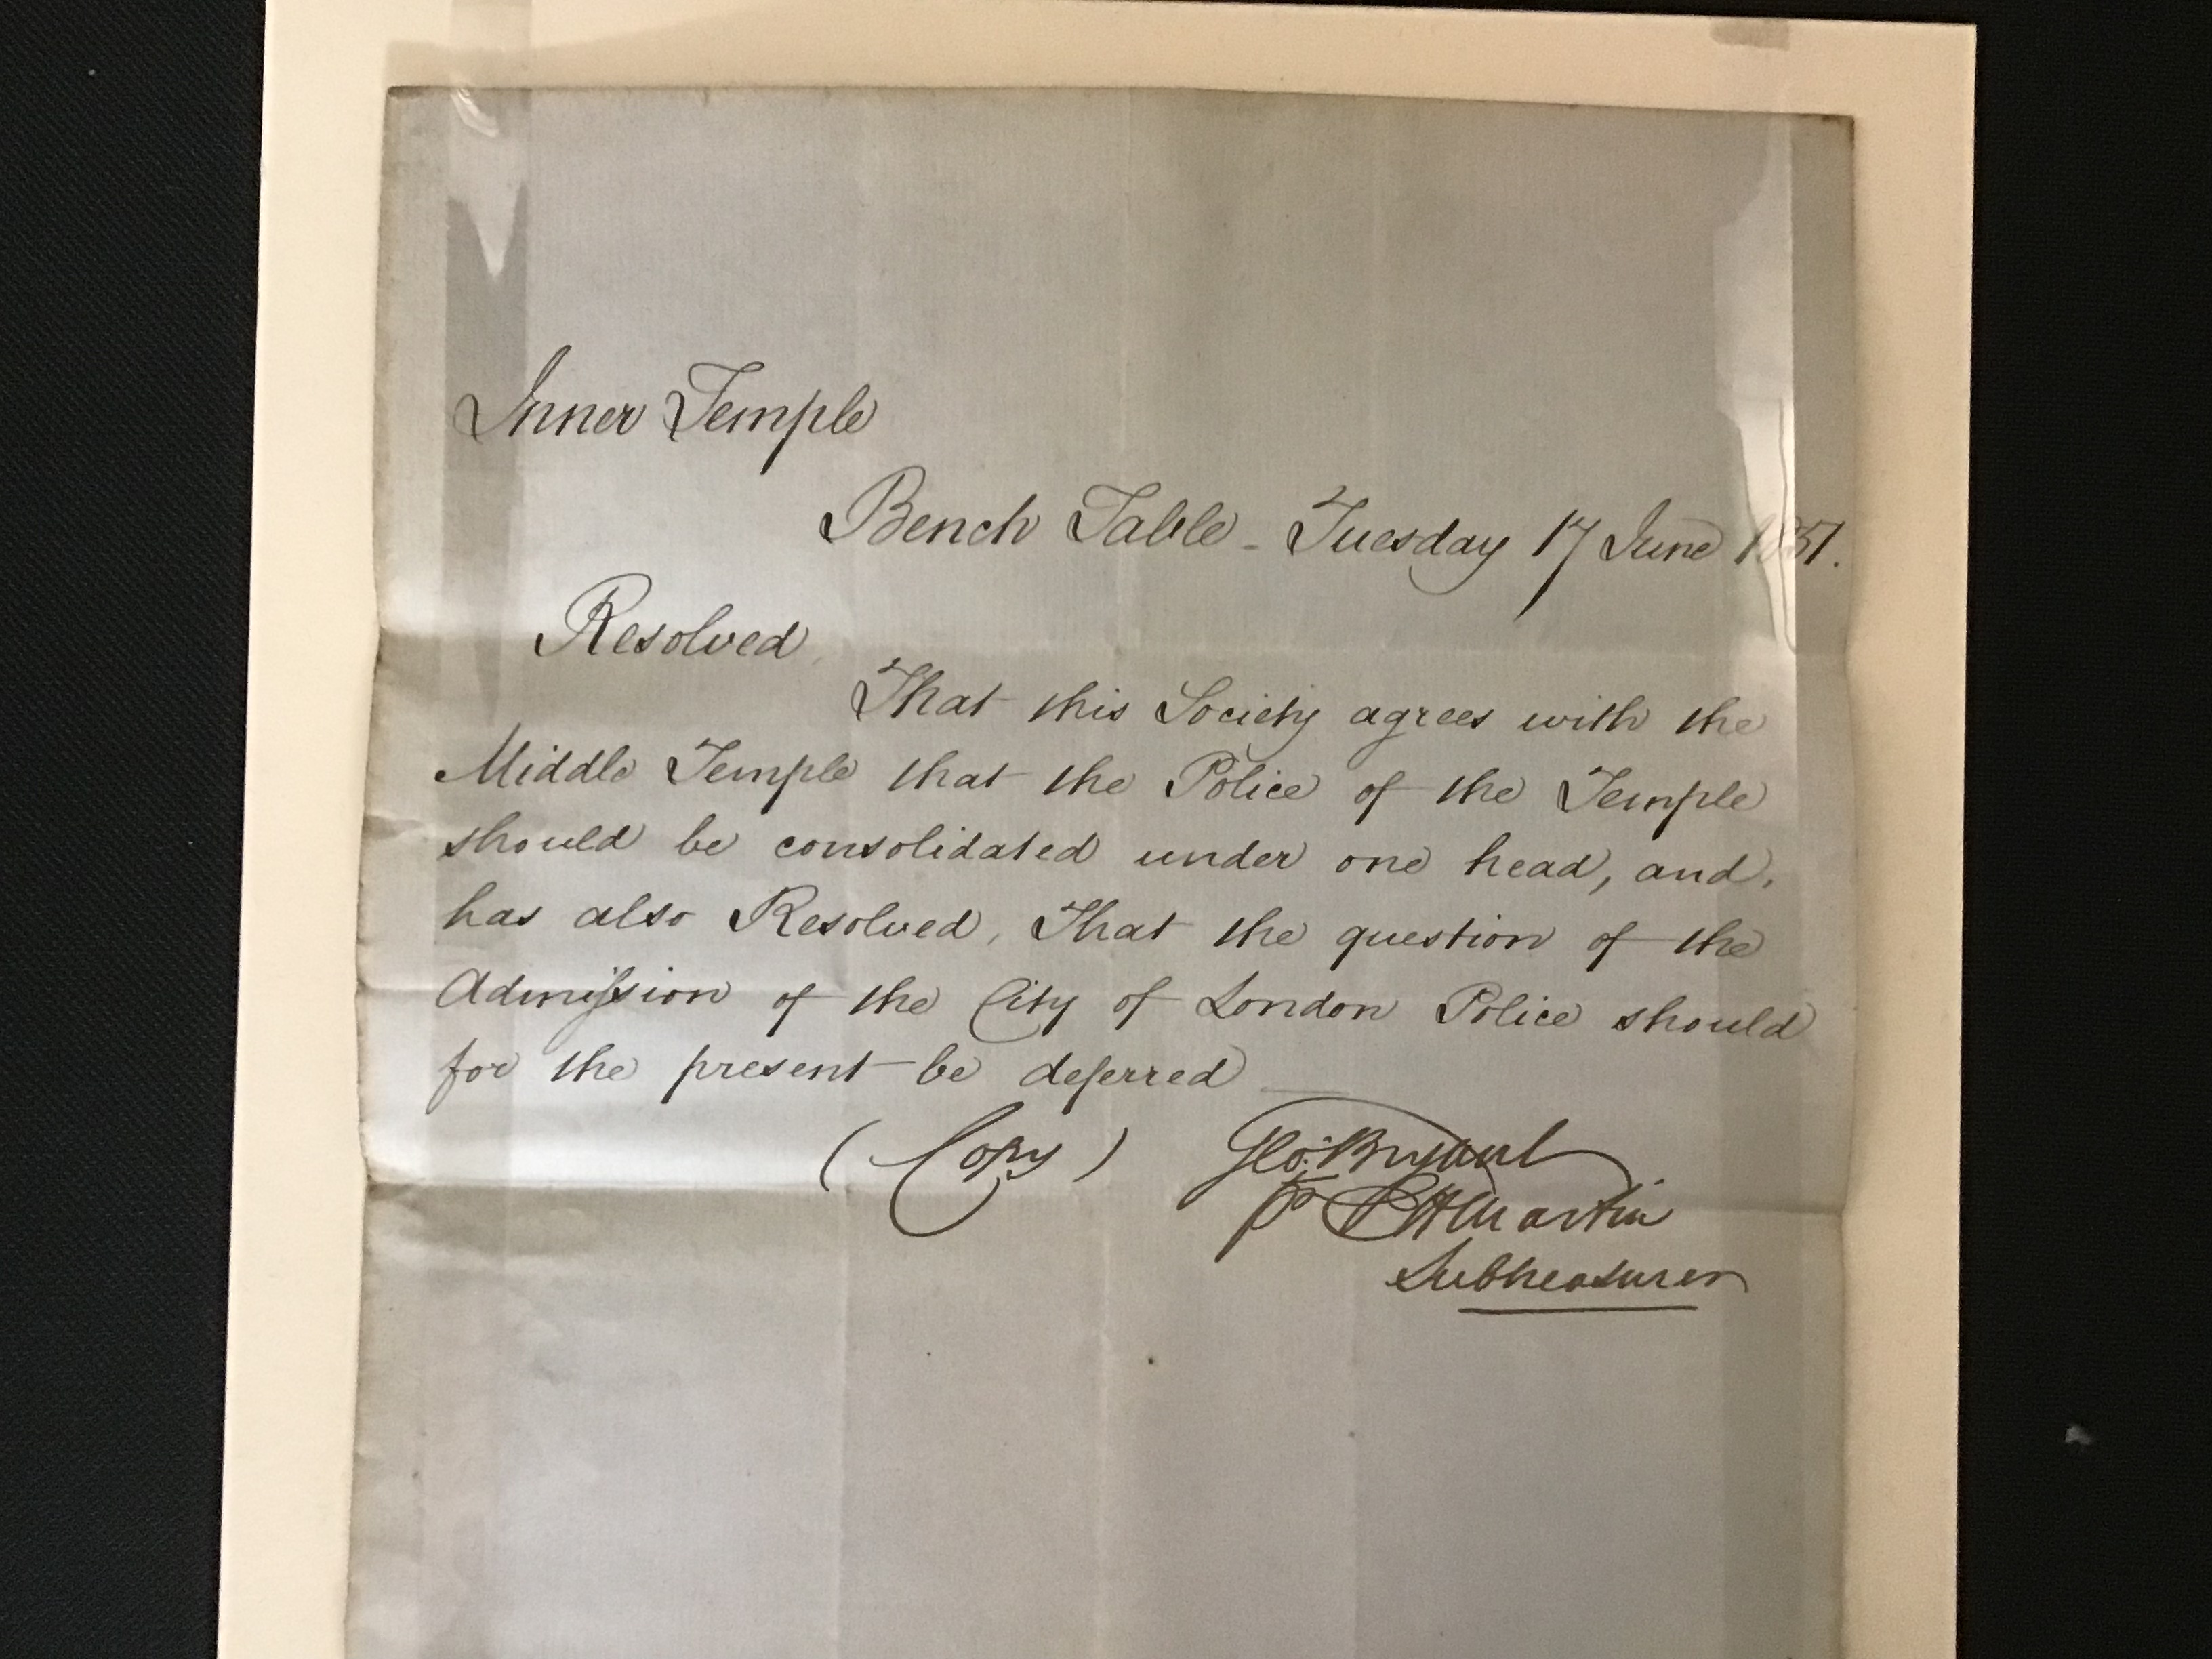 Inner Temple
Bench Table - Tuesday 17 June 1851.
Resolved,
That this Society agrees with the
Middle Temple that the Police of the Temple
should be consolidated under one head, and,
has also Resolved, That the question of the
Admission of the City of London Police should
for the present be deferred
(Copy) Geo: Bryant
Martin
Subtreasurer